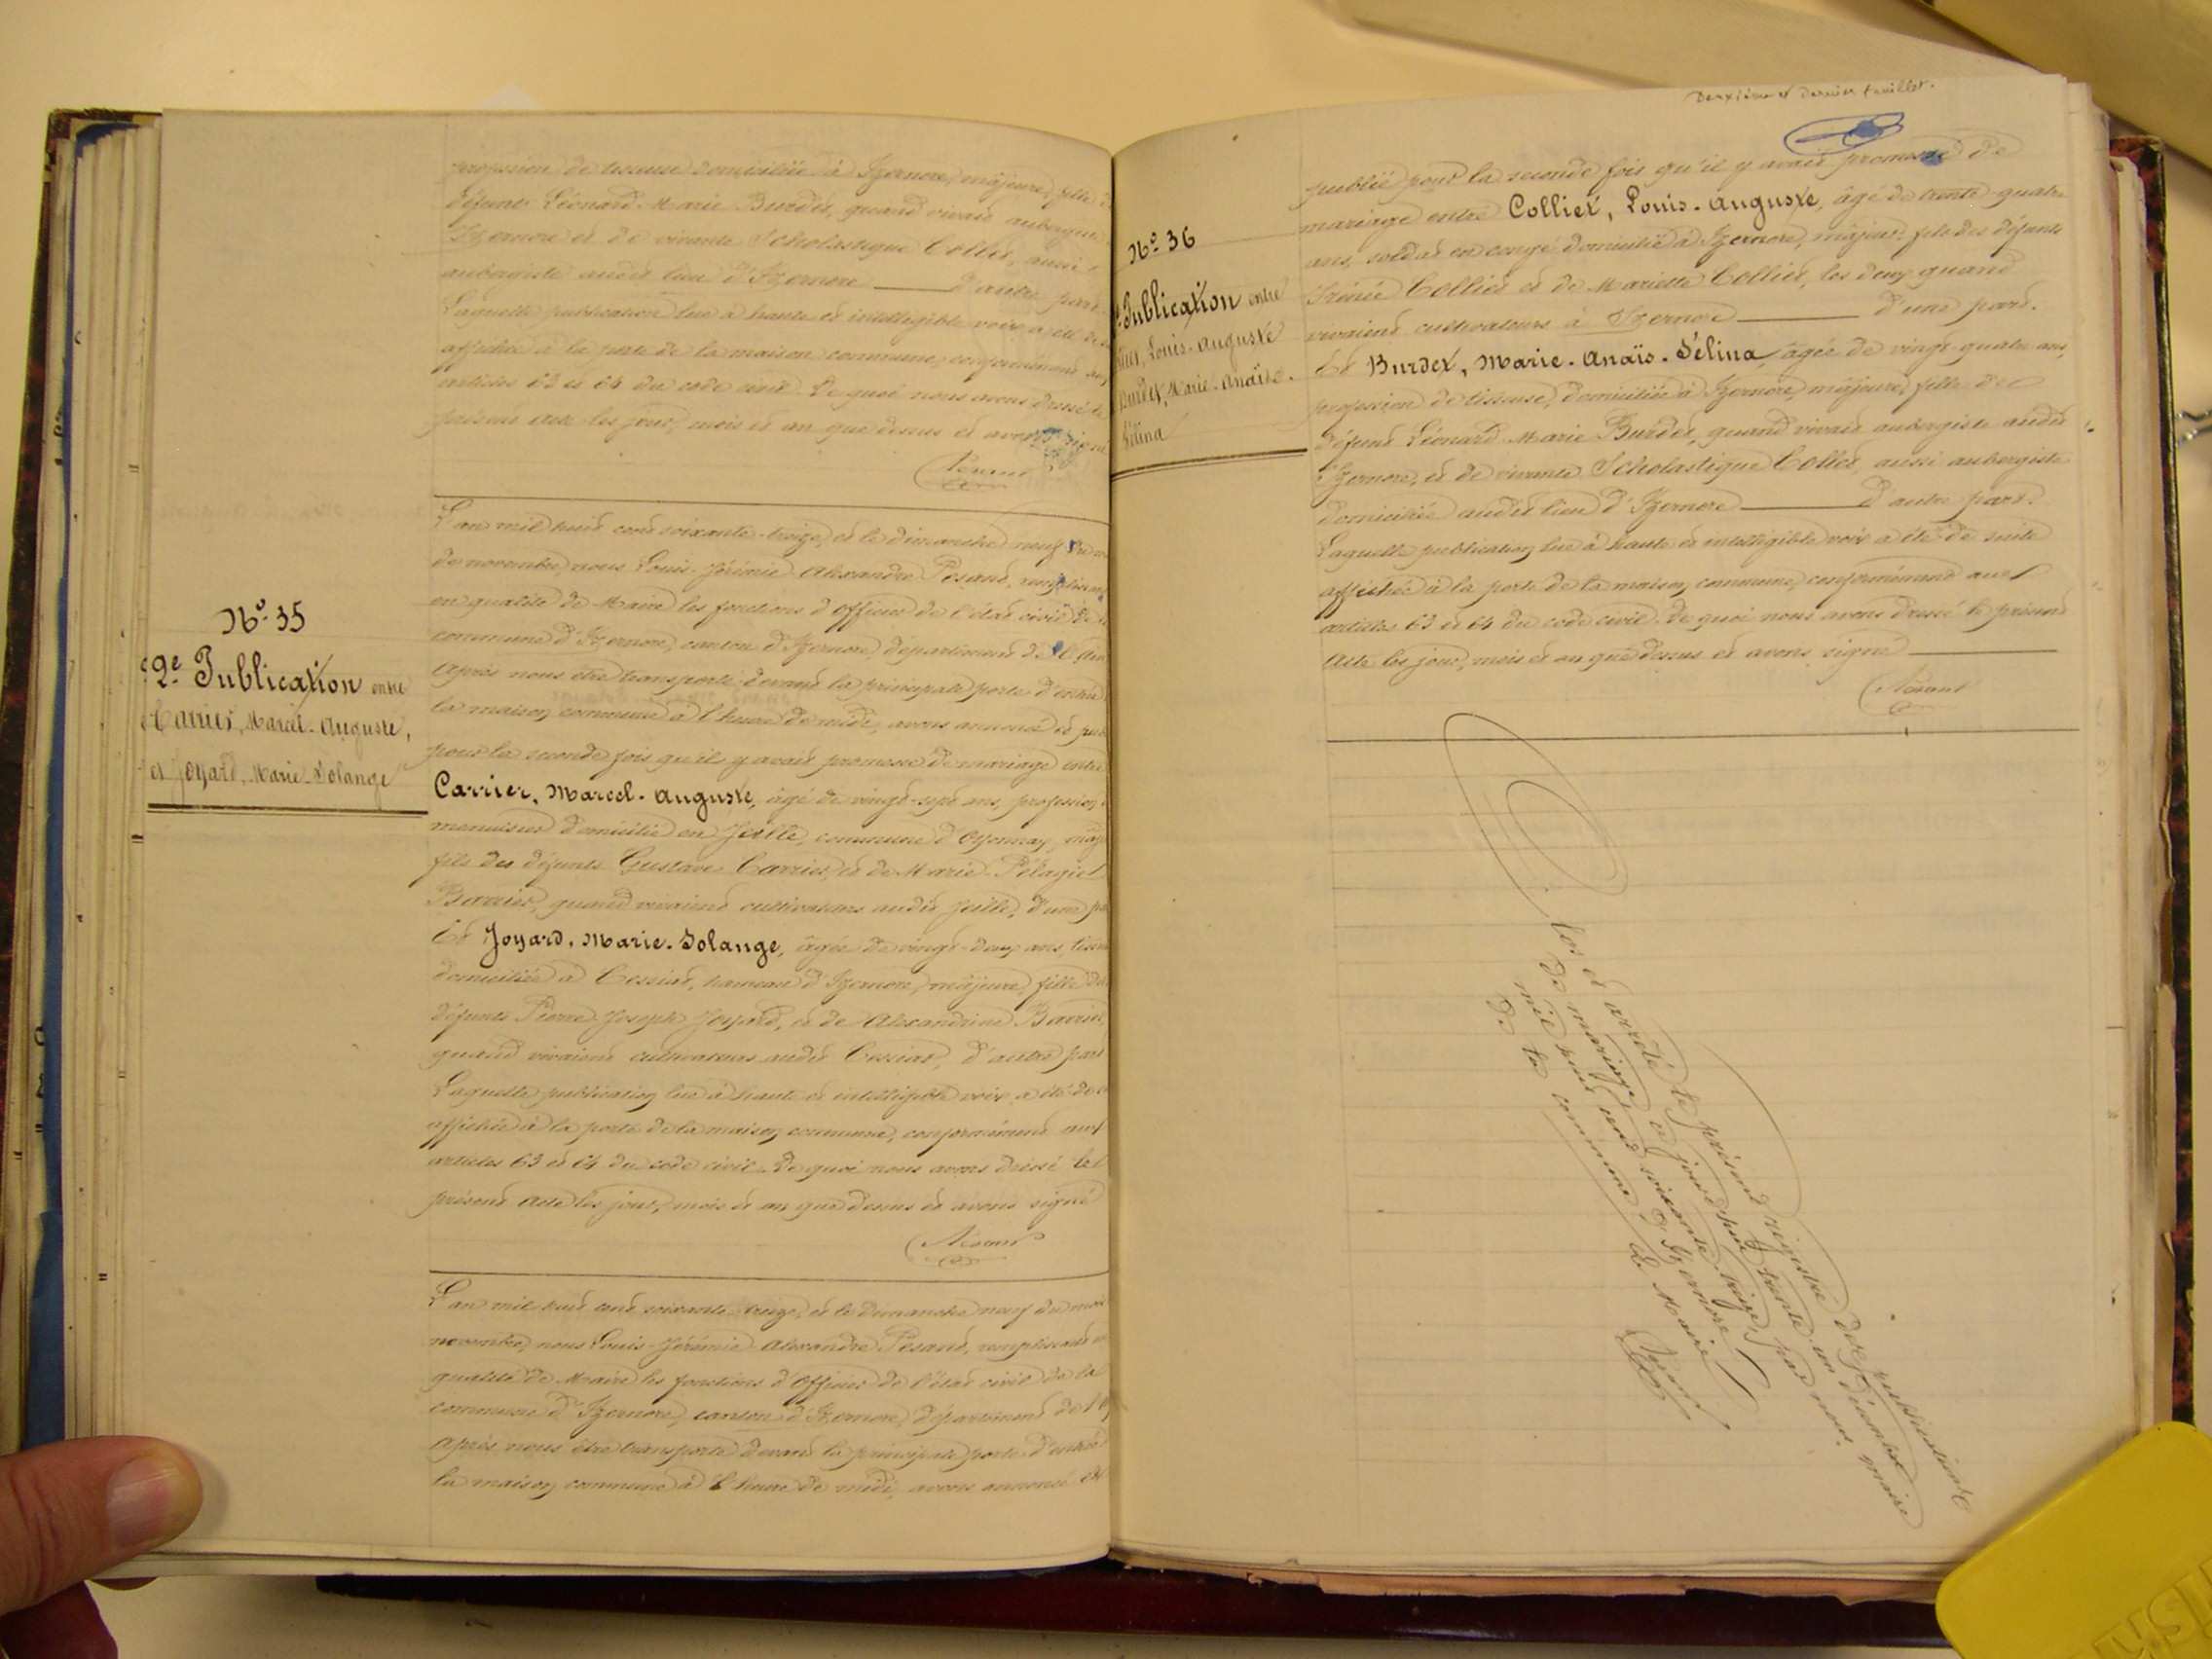 profession de tisseuse domiciliée à Izernore, majeure, fille de
défunt Léonard Marie Burdet, quand vivait aubergiste
Izernore et de vivante Scholastique Collet, aussi
aubergiste audit lieu d'Izernore d'autre part.
Laquelle publication lue à haute et intelligible voix a été de
affichée à la porte de la maison commune, conformément aux
articles 63 et 64 du code civil. De quoi nous avons dressé le
présent acte les jour, mois et an que dessus et avons signé
Nº 35
2e Publication entre
Carrier, Marcel-Auguste,
et Joyard, Marie-Solange
L'an mil huit cent soixante-treize, et le dimanche neuf du
de novembre, nous Louis-Jérémie Alexandre Pesant, remplissant
en qualité de Maire les fonctions d'officier de l'état civil de la
commune d'Izernore, canton d'Izernore, département de l'Ain
Après nous être transporté devant la principale porte d'entrée
la maison commune à l'heure de midi, avons annoncé et pub
pour la seconde fois qu'il y avait promesse de mariage entre
Carrier, Marcel-Auguste, âgé de vingt-sept ans, profession
menuisier domicilié en Geille, commune d'Oyonnax, maj
fils des défunts Gustave Carrier, et de Marie-Pélagie
quand vivaient cultivateurs audit Geille, d'une pa
Et Joyard, Marie-Solange, âgée de vingt-deux ans, tiss
domiciliée à Cessiat, hameau d'Izernore, majeure, fille des
défunts Pierre-Joseph Joyard, et de Alexandrine
quand vivaient cultivateurs audit Cessiat, d'autre part
Laquelle publication lue à haute et intelligible voix a été de
affichée à la porte de la maison commune, conformément aux
articles 63 et 64 du code civil. De quoi nous avons dressé le
présent acte les jour, mois et an que dessus et avons signé
L'an mil huit cent soixante-treize, et le dimanche neuf du mois
novembre, nous Louis-Jérémie Alexandre Pesant, remplissant en
qualité de Maire les fonctions d'officier de l'état civil de la
commune d'Izernore, canton d'Izernore, département de l'
Après nous être transporté devant la principale porte d'entrée
la maison commune à l'heure de midi, avons annoncé et
Deuxième et dernier feuillet.
Nº 36
Publication entre
Louis-Auguste
Burdet, Marie-Anaïs-
Sélina
publié pour la seconde fois qu'il y avait promesse de
mariage entre Colliet, Louis-Auguste, âgé de trente-quatre
ans, soldat en congé domicilié à Izernore, majeur, fils des défunts
Irénée Colliet et de Mariette Colliet, les deux quand
vivaient cultivateurs à Izernore d'une part.
Et Burdet, Marie-Anaïs-Sélina, âgée de vingt-quatre ans,
profession de tisseuse, domiciliée à Izernore, majeure, fille de
défunt Léonard Marie Burdet, quand vivait aubergiste audit
Izernore, et de vivante Scholastique Collet, aussi aubergiste
domiciliée audit lieu d'Izernore d'autre part.
Laquelle publication lue à haute et intelligible voix a été de suite
affichée à la porte de la maison commune, conformément aux
articles 63 et 64 du code civil. De quoi nous avons dressé le présent
acte les jour, mois et an que dessus et avons signé
Clos et arrêté le présent registre des publications
de mariage, ce jourd'hui trente-un décembre
mil huit cent soixante-treize, par nous maire
de la commune d'Izernore
Le Maire